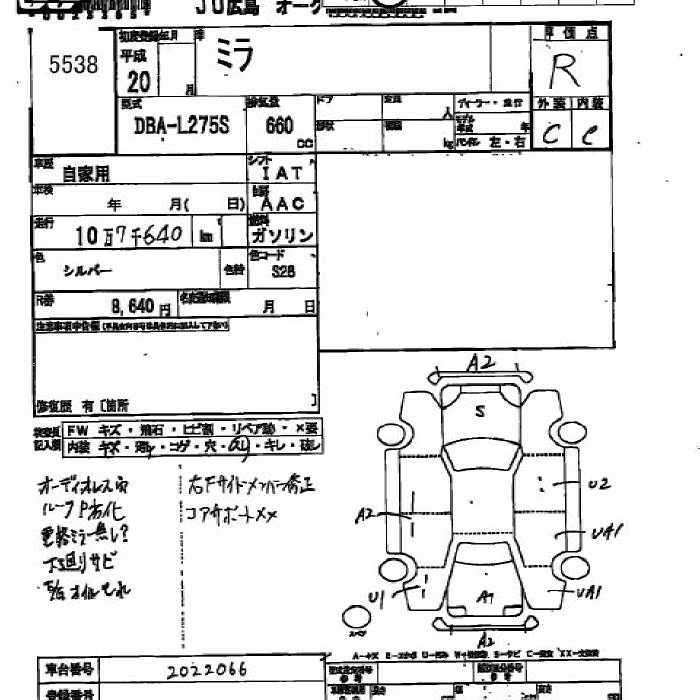 JU広島 オーク
5538
初度登録年月
平成
20
月
車
ミラ
評価点
R
型式
DBA-L275S
排気量
660
cc
ドア
形状
定員
人
積載
kg
ディーラー・並行
モデル
年式
年
ハンドル 左・右
外装 内装
C C
車歴
自家用
シフト
IAT
車検
年 月( 日)
冷房
AAC
走行
10万7千640 km
燃料
ガソリン
色
シルバー
色替
色コード
S28
R券
8,640円
名変通知期限
月 日
注意事項申告欄
修復歴 有 [箇所 ]
検査員
記入欄
FW キズ・飛石・ヒビ割・リペア跡・×要
内装 キズ・汚れ・コゲ・穴・スレ・キレ・破レ
オーディオレス穴
ルーフP劣化
下廻りサビ
右Fサイドメンバー修正
コアサポート××
A2
S
A2
U2
UA1
U1
UA1
A1
A2
スペア
車台番号
2022066
登録番号